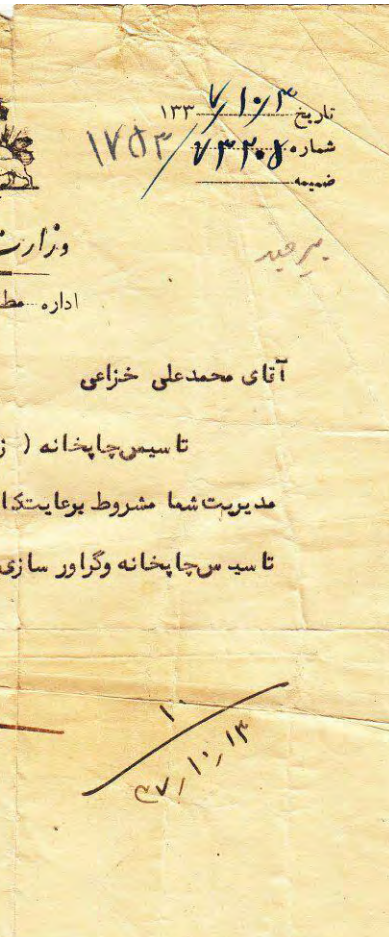 تاریخ ۱۳۳۷/۱۰/۳
شماره ۷۳۲۰۵/۱۷۵۳
ضمیمه
بیرجند
وزارت
اداره مط
آقای محمدعلی خزاعی
تاسیس چاپخانه ( ز
مدیریت شما مشروط برعایت کا
تاسیس چاپخانه وگراور سازی
۱۰
۳۷/۱۰/۱۳